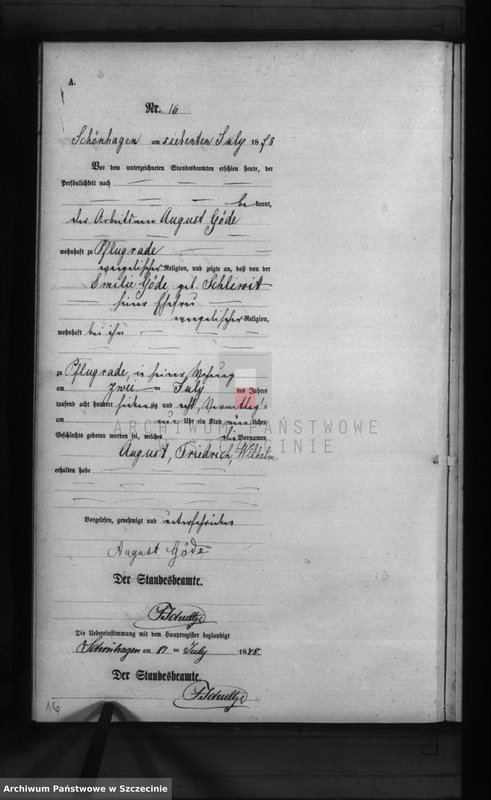 A.
Nr. 16
Schönhagen am siebenten July 1878
Vor dem unterzeichneten Standesbeamten erschien heute, der
Persönlichkeit nach
be kannt,
der Arbeitsmann August Göde
wohnhaft zu Pflugrade
evangelischer Religion, und zeigte an, daß von der
Emilie Göde geb. Schliewitt
seiner Ehefrau
evangelischer Religion,
wohnhaft bei ihm
zu Pflugrade, in seiner Wohnung
am zwei July des Jahres
tausend acht hundert siebenzig und acht, Vormittag
um Uhr ein Kind lichen
Geschlechts geboren worden sei, welches die Vornamen
August, Friedrich, Wilhelm
erhalten habe
Vorgelesen, genehmigt und unterschrieben
August Göde
Der Standesbeamte.
Schultz
Die Uebereinstimmung mit dem Hauptregister beglaubigt
Schönhagen am July 1878.
Der Standesbeamte.
Schultz
16
ARCHIWUM PAŃSTWOWE
W SZCZECINIE
Archiwum Państwowe w Szczecinie